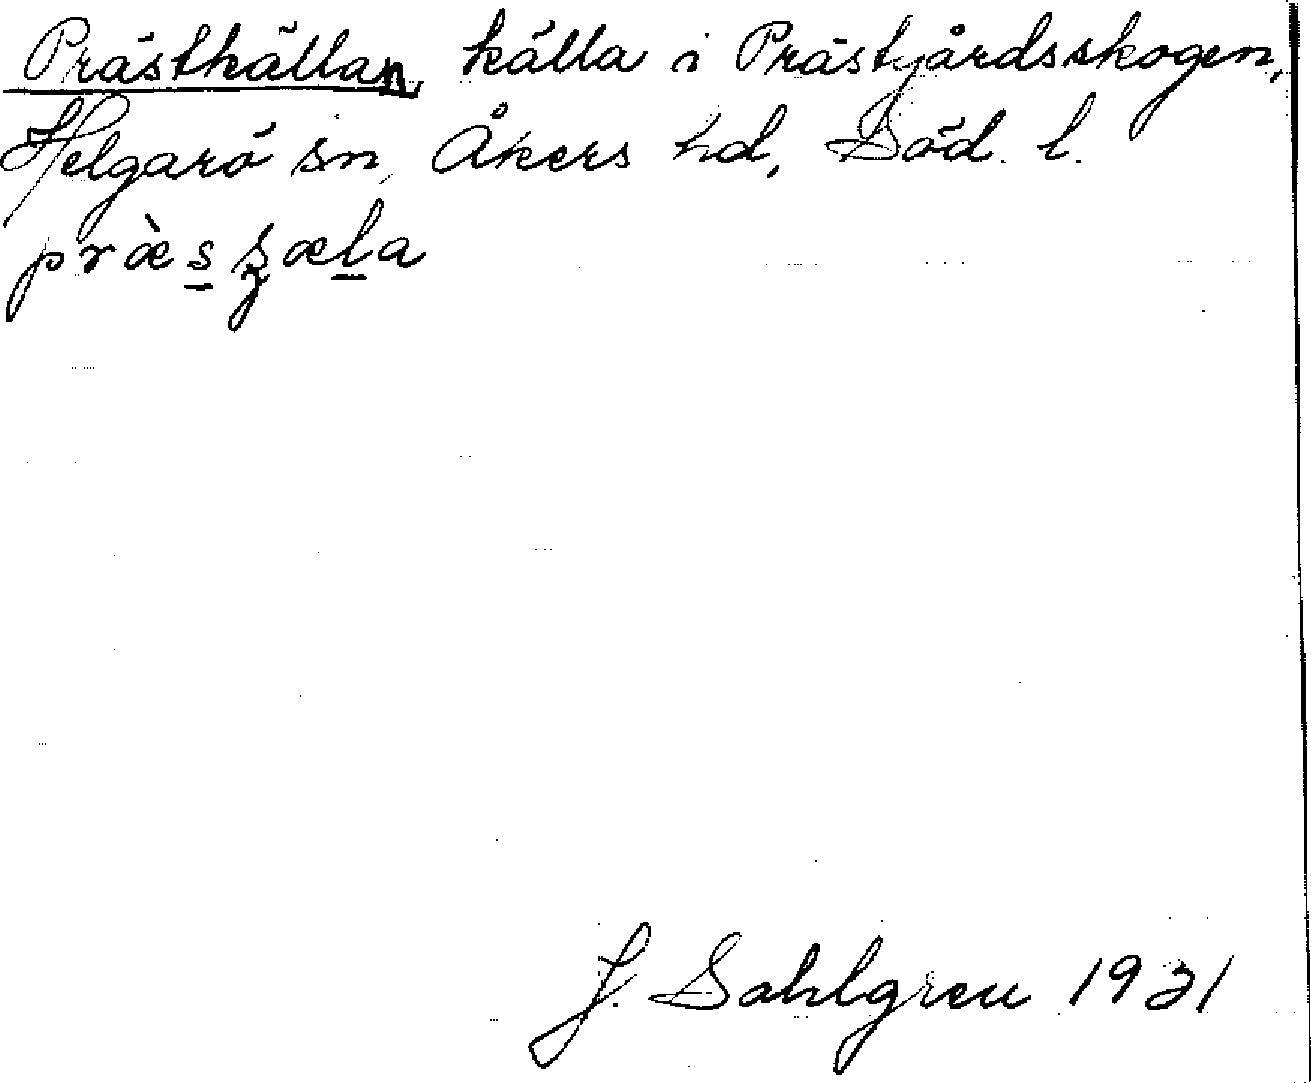 Prästkällan, källa i Prästgårdsskogen,
Helgarö sn, Åkers hd, Söd. l.
J. Sahlgren 1931